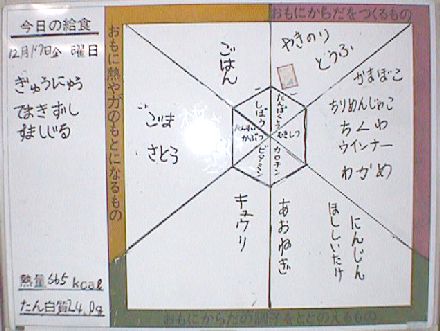 今日の給食
12月17日金曜日
ぎゅうにゅう
てまきずし
すましじる
熱量565kcal
たん白質24.0g
おもに熱や力のもとになるもの
おもにからだをつくるもの
おもにからだの調子をととのえるもの
ごはん
ごま
さとう
やきのり
とうふ
かまぼこ
ちりめんじゃこ
ちくわ
ウインナー
わかめ
キュウリ
あおねぎ
にんじん
ほししいたけ
しぼう
たんぱくしつ
むきしつ
カロチン
ビタミン